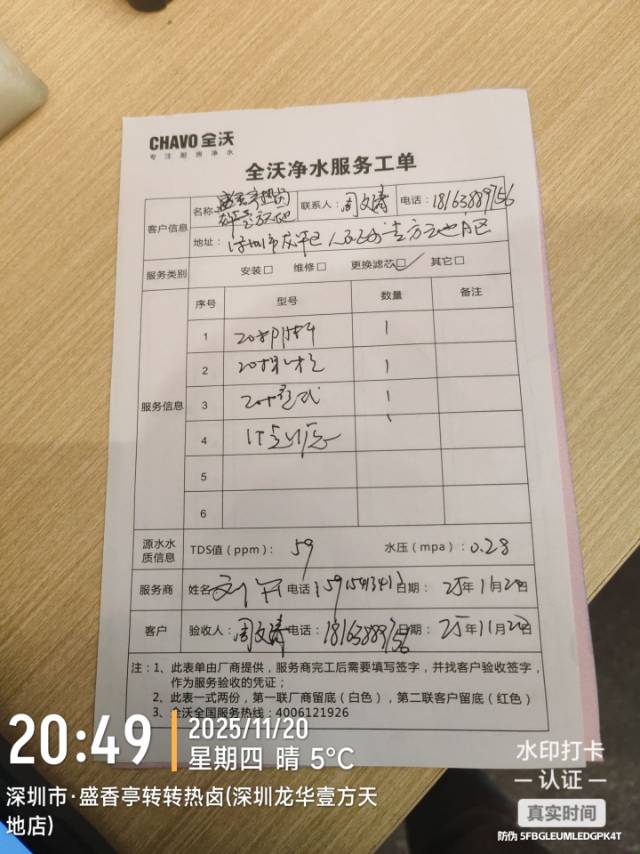 CHAVO 全沃
专注厨房净水
全沃净水服务工单
客户信息
名称: 盛香亭热卤
龙华壹方天地
联系人: 周文涛 电话: 18163889756
地址: 深圳市龙华区人民路壹方天地A区
服务类别 安装□ 维修□ 更换滤芯☑ 其它□
服务信息
序号 型号 数量 备注
1 1
2 1
3 1
4
5
6
源水水质信息 TDS值(ppm): 59 水压(mpa): 0.28
服务商 姓名 电话 日期: 25年11月20日
客户 验收人: 周文涛 电话: 18163889756 日期: 25年11月20日
注:1、此表单由厂商提供,服务商完工后需要填写签字,并找客户验收签字,
作为服务验收的凭证;
2、此表一式两份,第一联厂商留底(白色),第二联客户留底(红色)
3、全沃全国服务热线:4006121926
20:49
2025/11/20
星期四 晴 5°C
深圳市·盛香亭转转热卤(深圳龙华壹方天
地店)
水印打卡
认证
真实时间
防伪 5FBGLEUMLEDGPK4T